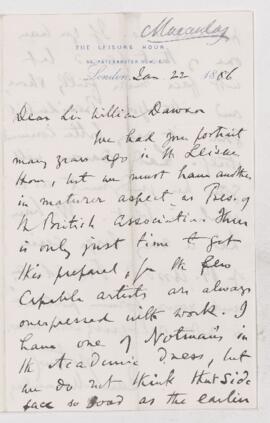 Macaulay
THE LEISURE HOUR
56, PATERNOSTER ROW, E.C.
London, Jan 22 1886
Dear Sir William Dawson
We had your portrait
many years ago in the Leisure
Hour, but we must have another
in maturer aspect as Pres. of
the British Association. There
is only just time to get
this prepared, for the few
capable artists are always
overpressed with work. I
have one of Notman's in
the Academic Dress, but
we do not think that side
face so good as the earlier